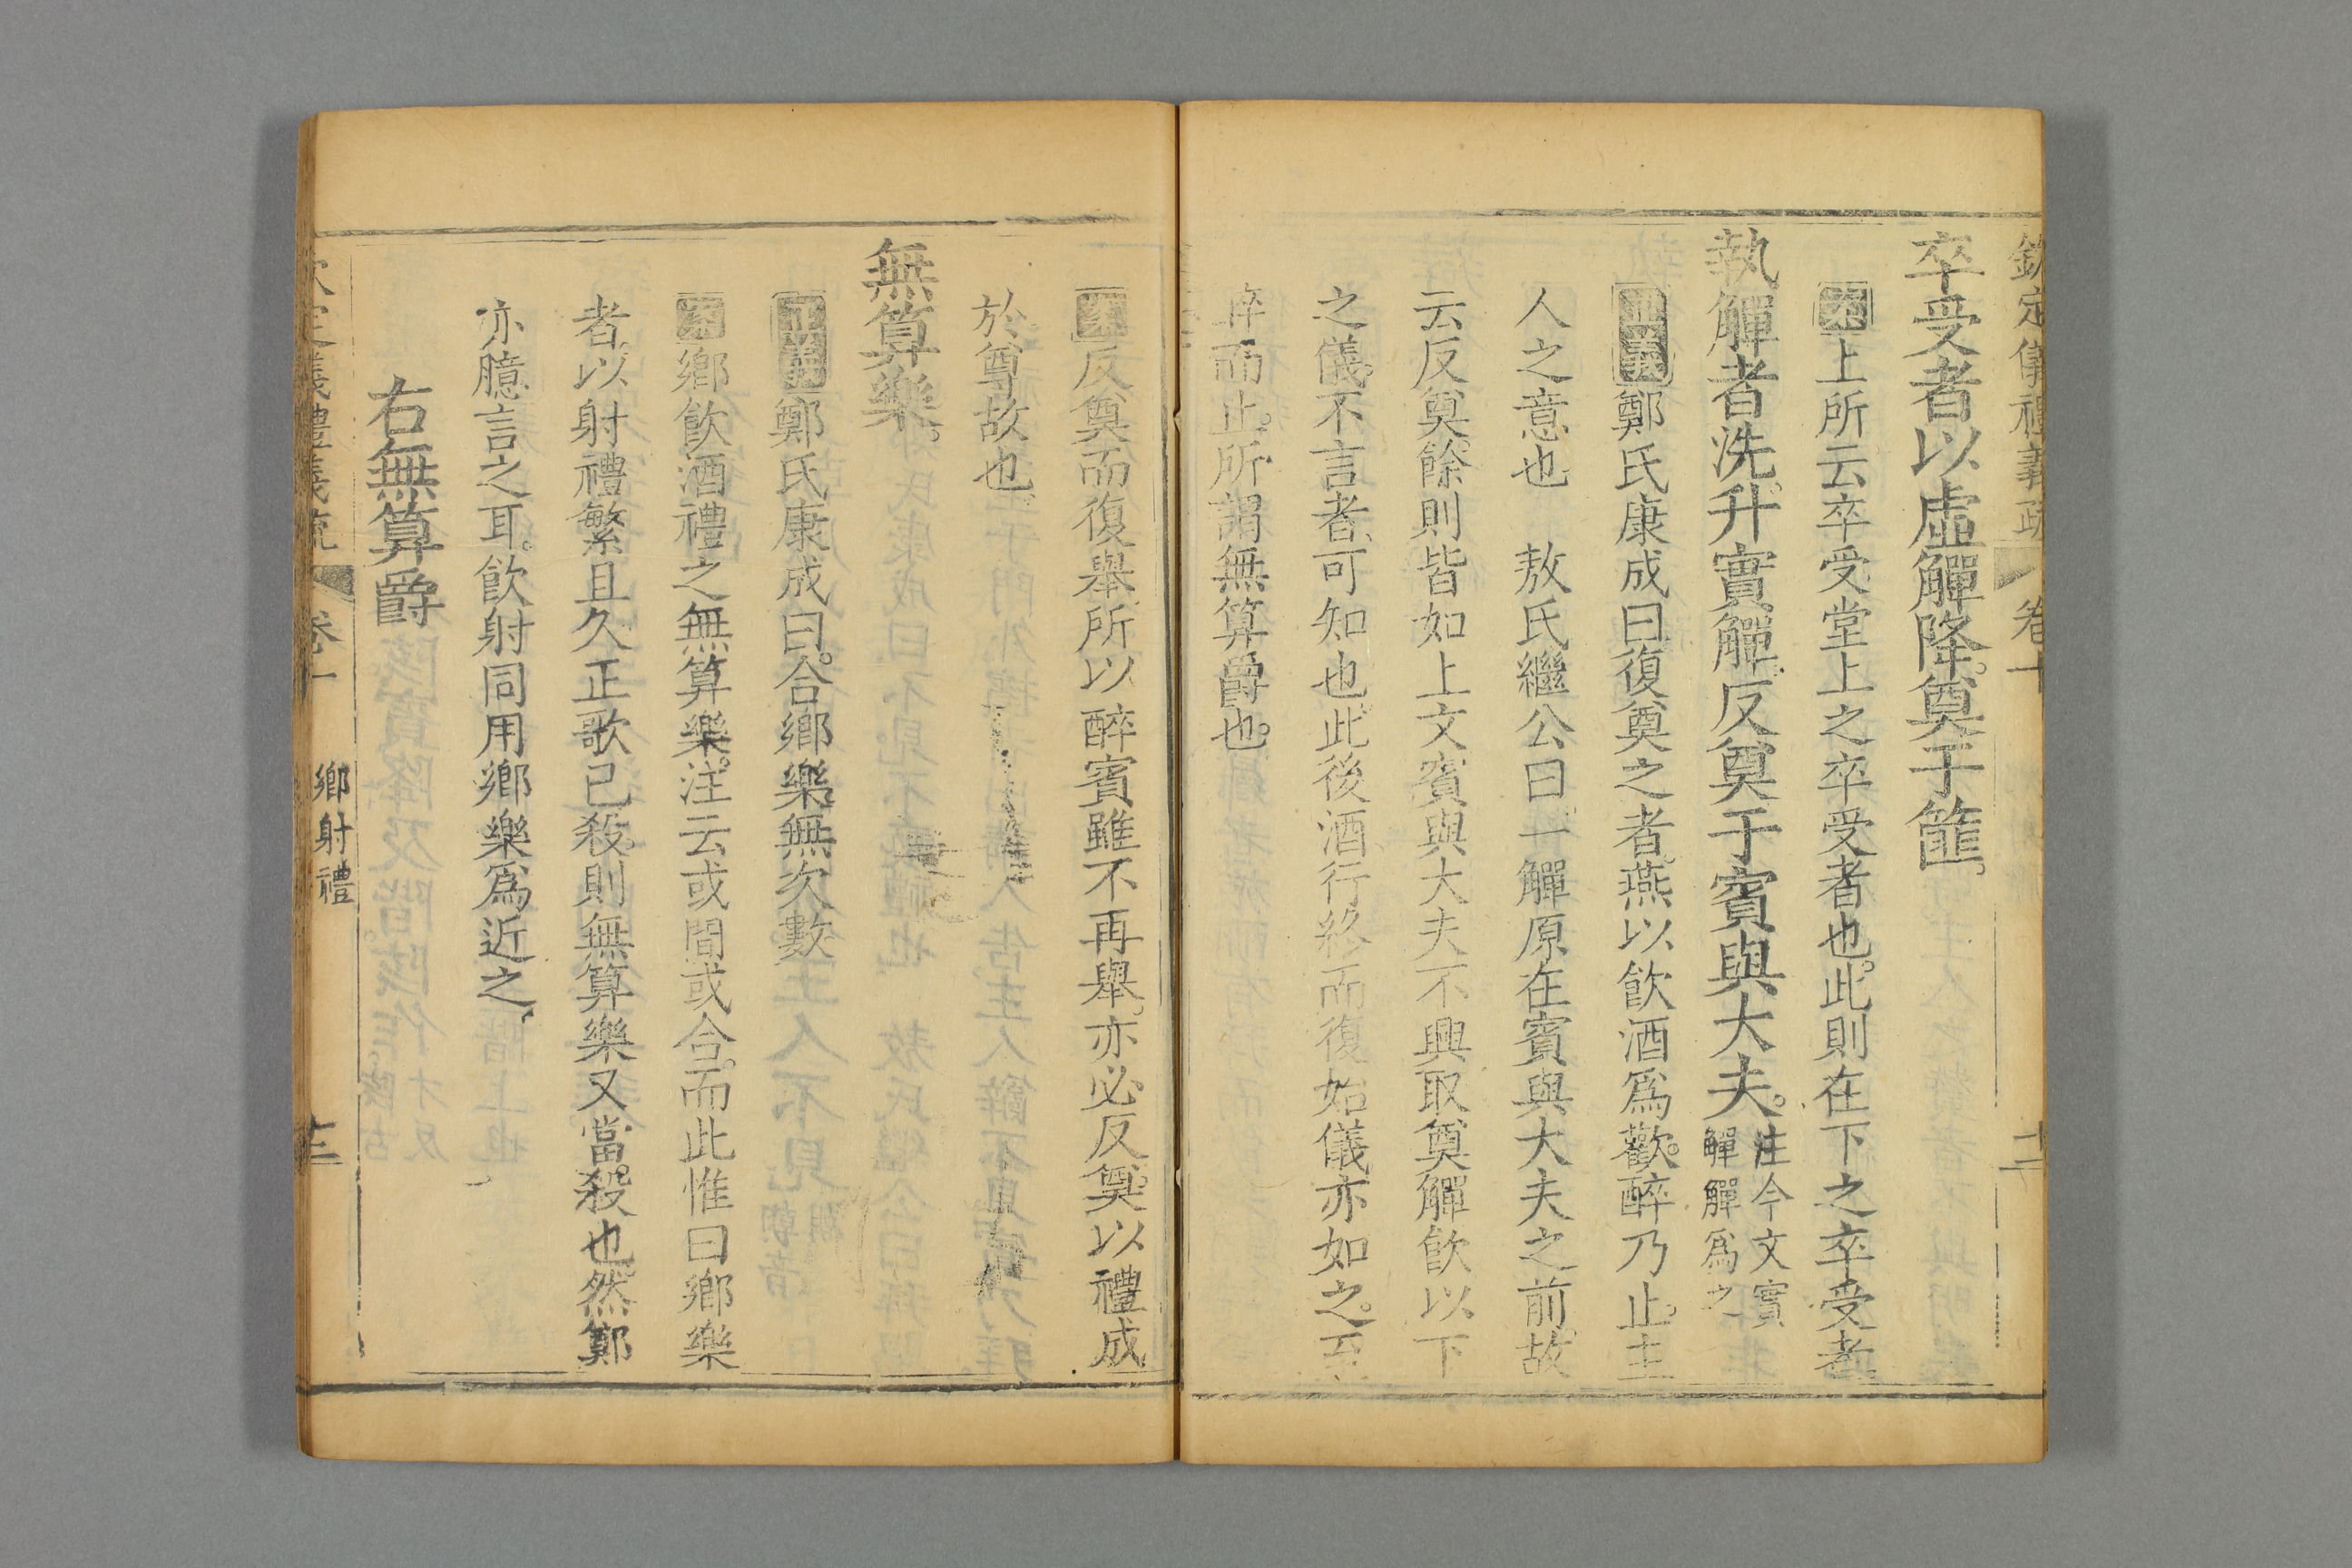 欽定儀禮義疏 卷十 十二
卒受者以虛觶降。奠于篚。
案上所云卒受堂上之卒受者也。此則在下之卒受者
執觶者洗。升實觶。反奠于賓與大夫。注今文實觶觶爲之
正義鄭氏康成曰。復奠之者。燕以飲酒爲歡。醉乃止。主
人之意也 敖氏繼公曰。一觶原在賓與大夫之前。故
云反奠。餘則皆如上文賓與大夫不興取奠觶飲以下
之儀。不言者。可知也。此後酒行終而復始。儀亦如之。至
醉而止。所謂無算爵也。
案反奠而復舉。所以醉賓。雖不再舉。亦必反奠。以禮成
於尊故也。
無算樂。
正義鄭氏康成曰。合鄉樂無次數
案鄉飲酒禮之無算樂。注云或間或合。而此惟曰鄉樂
者。以射禮繁且久。正歌已殺。則無算樂又當殺也。然鄭
亦臆言之耳。飲射同用鄉樂爲近之。
右無算爵
欽定儀禮義疏 卷十 鄉射禮 十三